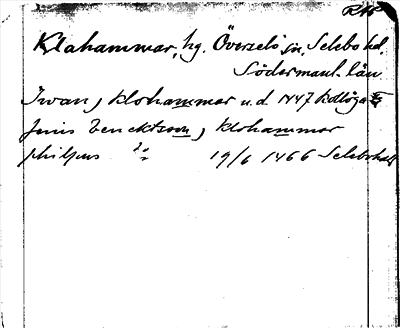 Klahammar, hg. Överselö sn, Selebo hd,
Södermanl. län
Iwan j klohammar u.d. 1447
Jenis benektson j klohammar
philpus 19/6 1466 Selebohd